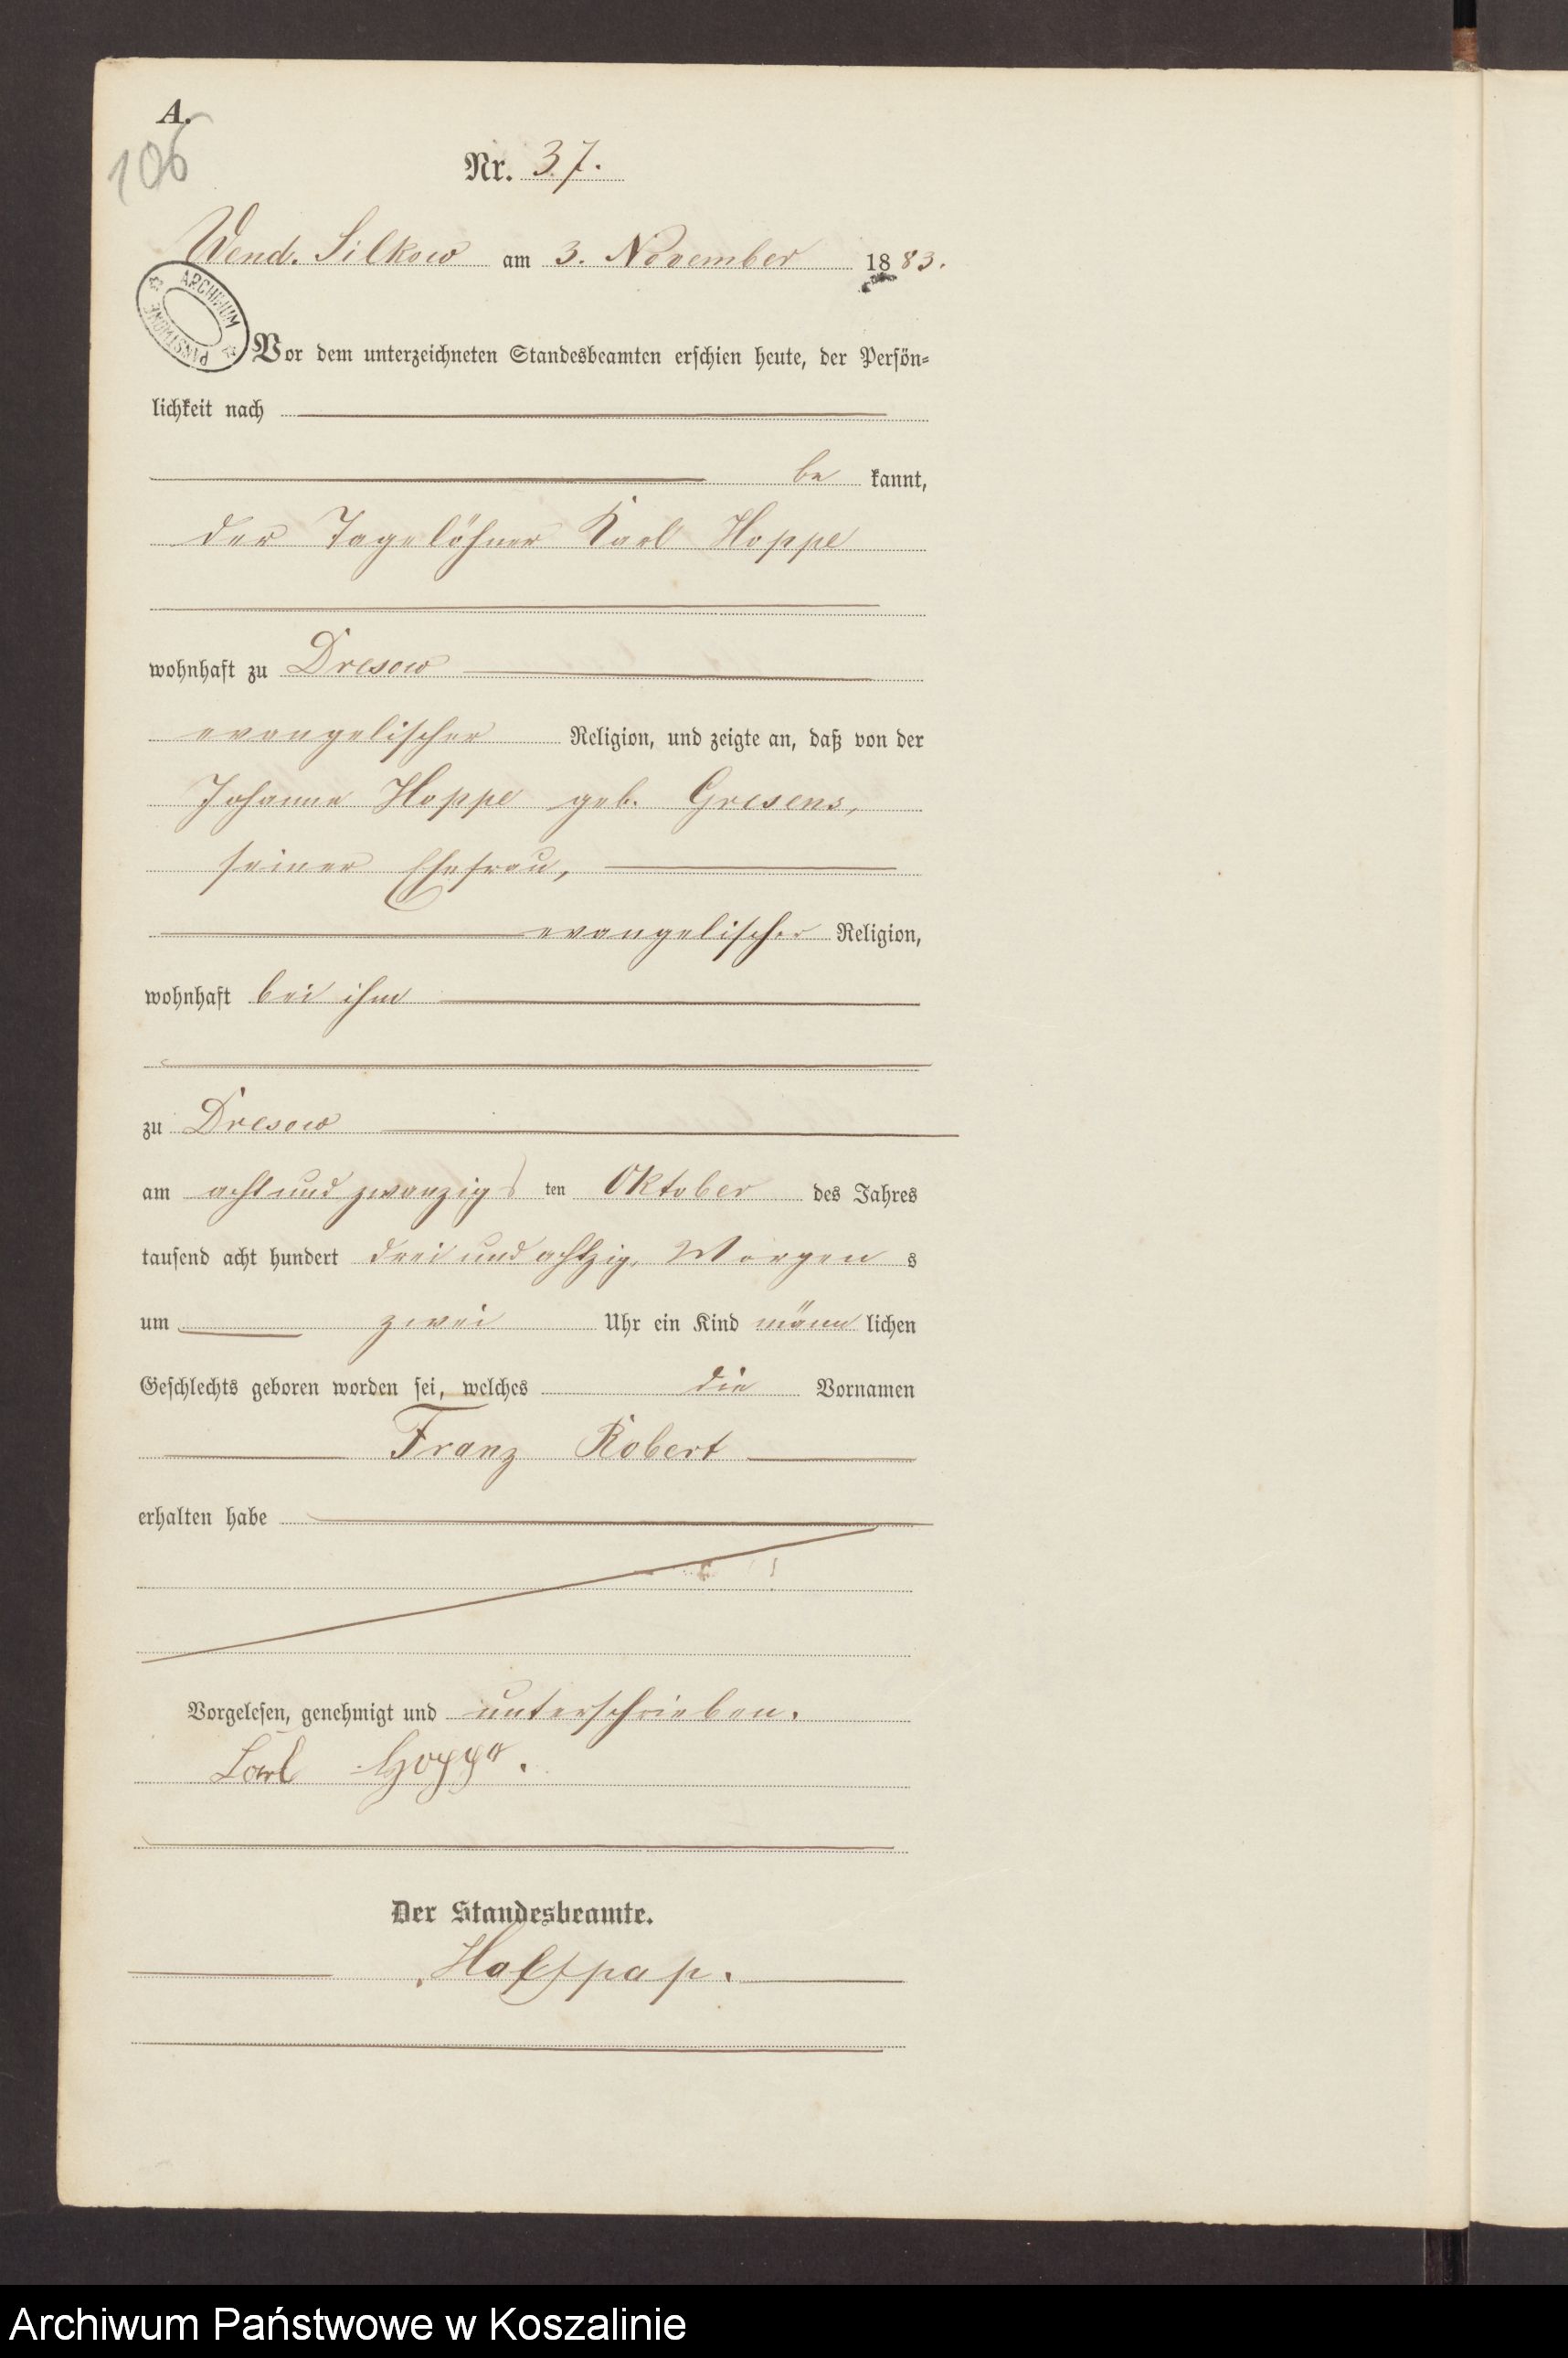 A.
106
Nr. 37.
Wend. Silkow am 3. November 1883.
ARCHIWUM PAŃSTWOWE
Vor dem unterzeichneten Standesbeamten erschien heute, der Persön=
lichkeit nach
be kannt,
der Tagelöhner Karl Hoppe
wohnhaft zu Dresow
evangelischer Religion, und zeigte an, daß von der
Johanna Hoppe geb. Gresens,
seiner Ehefrau,
evangelischer Religion,
wohnhaft bei ihm
zu Dresow
am acht und zwanzigs ten Oktober des Jahres
tausend acht hundert drei und achtzig, Morgen s
um zwei Uhr ein Kind männ lichen
Geschlechts geboren worden sei, welches die Vornamen
Franz Robert
erhalten habe
Vorgelesen, genehmigt und unterschrieben.
Carl Hoppe.
Der Standesbeamte.
Archiwum Państwowe w Koszalinie